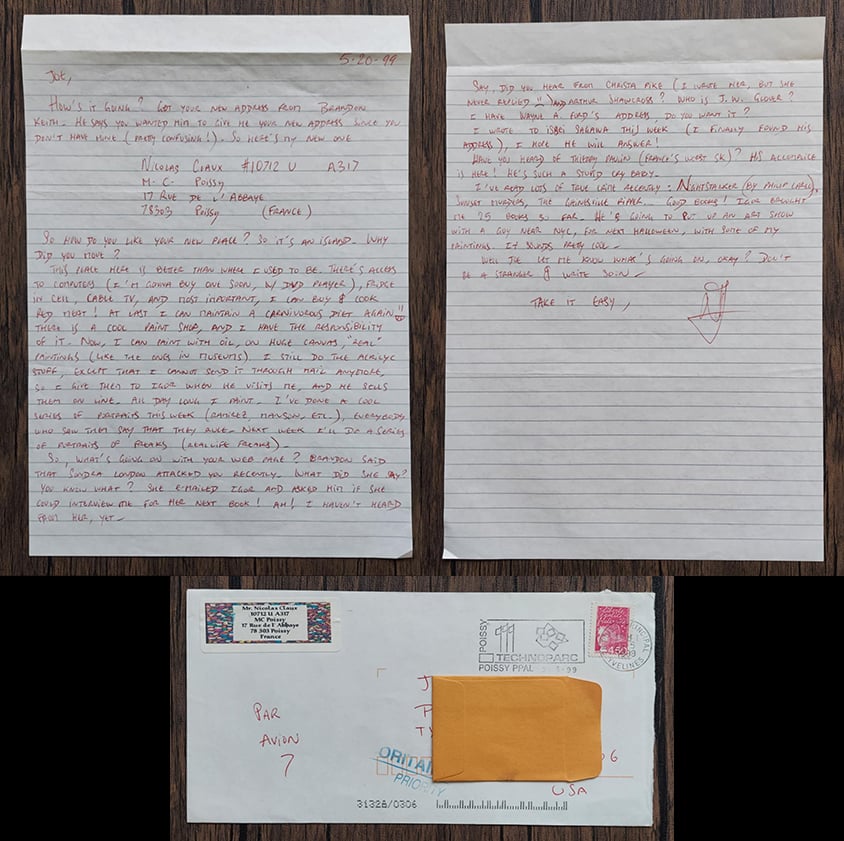 5-20-99
Joe,
How's it going? Got your new address from Brandon
Keith. He says you wanted him to give me your new address since you
don't have mine (pretty confusing!). So here's my new one
Nicolas Claux #10712 U A317
M.C. Poissy
17 Rue de l'Abbaye
78303 Poissy (France)
So how do you like your new place? So it's an island. Why
did you move?
This place here is better than where I used to be. There's access
to computers (I'm gonna buy one soon, w/ DVD player), fridge
in cell, cable TV, and most important, I can buy & cook
red meat! At last I can maintain a carnivorous diet again
There is a cool paint shop, and I have the responsibility
of it. Now, I can paint with oil, on huge canvas, "real"
paintings (like the ones in museums) I still do the acrilyc
stuff, except that I cannot send it through mail anymore,
so I give them to Igor when he visits me, and he sells
them on line. All day long I paint. I've done a cool
series of portraits this week (Ramirez, Manson, etc.), everybody
who saw them say that they rule. Next week I'll do a series
of portraits of freaks (real life freaks).
So, what's going on with your web page? Brandon said
that Sondra London attacked you recently. What did she say?
You know what? She e-mailed Igor and asked him if she
could interview me for her next book! Ah! I haven't heard
from her, yet.
Say, did you hear from Christa Pike (I wrote her, but she
never replied) and Arthur Shawcross? Who is J.W. Glover?
I have Wayne A. Ford's address, do you want it?
I wrote to Issei Sagawa this week (I finally found his
address), I hope he will answer!
Have you heard of Thierry Paulin (France's worst SK)? His accomplice
is here! He's such a stupid cry baby.
I've read lots of true crime recently: Nightstalker (by Philip Carlo),
Sunset Murders, the Gainesville Ripper. Good books! Igor brought
me 25 books so far. He's going to put up an art show
with a guy near NYC, for next Halloween, with some of my
paintings. It sounds pretty cool.
Well Joe let me know what's going on, okay? Don't
be a stranger & write soon.
Take it easy,
Mr. Nicolas Claux
10712 U A317
MC Poissy
17 Rue de l'Abbaye
78 303 Poissy
France
POISSY
TECHNOPARC
POISSY PPAL
-99
PRINCIPAL
YVELINES
J
P
Ty
6
USA
Par
Avion
PRIORITY
3132A/0306